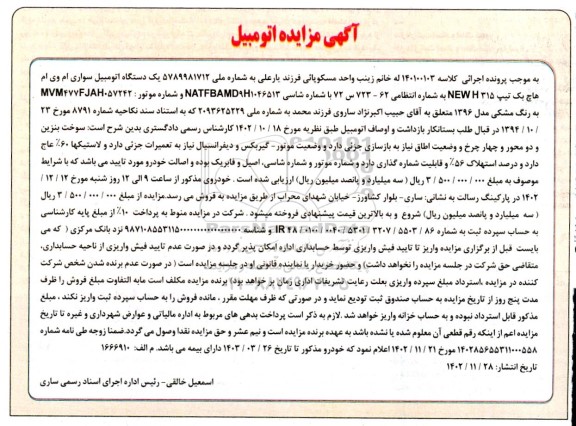 آگهی مزایده اتومبیل
به موجب پرونده اجرائی کلاسه ۱۴۰۱۰۰۱۰۳ له خانم زینب واحد مسکوپائی فرزند یارعلی به شماره ملی ۵۷۸۹۹۸۱۷۱۲ یک دستگاه اتومبیل سواری ام وی ام
هاچ بک تیپ NEW H ۳۱۵ به شماره انتظامی ۶۲ - ۷۲۳ س ۷۲ با شماره شاسی NATFBAMD۱H۱۰۴۶۵۱۳ و شماره موتور : MVM۴۷۷FJAH۰۵۷۲۴۲
به رنگ مشکی مدل ۱۳۹۶ متعلق به آقای حبیب اکبرنژاد ساروی فرزند محمد به شماره ملی ۲۰۹۳۶۲۵۲۲۹ که به استناد سند نکاحیه شماره ۸۷۹۱ مورخ ۲۳
/ ۱۰ / ۱۳۹۴ در قبال طلب بستانکار بازداشت و اوصاف اتومبیل طبق نظریه مورخ ۱۸ / ۱۰ / ۱۴۰۲ کارشناس رسمی دادگستری بدین شرح است: سوخت بنزین
و دو محور و چهار چرخ و وضعیت اطاق نیاز به بازسازی جزئی دارد و وضعیت موتور- گیربکس و دیفرانسیال نیاز به تعمیرات جزئی دارد و لاستیکها ۶۰٪ عاج
دارد و درصد استهلاک ۵۶٪ و قابلیت شماره گذاری دارد و شماره موتور و شماره شاسی، اصیل و فابریک بوده و اصالت خودرو مورد تایید می باشد که با شرایط
موصوف به مبلغ ۰۰۰ / ۰۰۰ / ۵۰۰ / ۳ ریال ( سه میلیارد و پانصد میلیون ریال) ارزیابی شده است . خودروی مذکور از ساعت ۹ الی ۱۲ روز شنبه مورخ ۱۲ / ۱۲ /
۱۴۰۲ در پارکینگ رسالت به نشانی: ساری- بلوار کشاورز- خیابان شهدای محراب از طریق مزایده به فروش می رسد.مزایده از مبلغ ۰۰۰ / ۰۰۰ / ۵۰۰ / ۳ ریال
( سه میلیارد و پانصد میلیون ریال) شروع و به بالاترین قیمت پیشنهادی فروخته میشود . شرکت در مزایده منوط به پرداخت ۱۰٪ از مبلغ پایه کارشناسی
به حساب سپرده ثبت به شماره ۵۵۰۳ / ۸۶ / IR ۴۸ / ۰۱۰۰ / ۰۰۰۰ / ۵۳۰۱ / ۳۲۰۷ و شناسه ۹۸۷۱۰۸۵۵۳۱۱۵۰۰۰۰۰۰۰۰۰۰۰۰۰۰۰ نزد بانک مرکزی ( که می
بایست قبل از برگزاری مزایده واریز تا تایید فیش واریزی توسط حسابداری اداره امکان پذیر گردد و در صورت عدم تایید فیش واریزی از ناحیه حسابداری،
متقاضی حق شرکت در جلسه مزایده را نخواهد داشت) و حضور خریدار یا نماینده قانونی او در جلسه مزایده است ( در صورت عدم برنده شدن شخص شرکت
کننده در مزایده ،استرداد مبلغ سپرده واریزی بعلت رعایت تشریفات اداری زمان بر خواهد بود) برنده مزایده مکلف است مابه التفاوت مبلغ فروش را ظرف
مدت پنج روز از تاریخ مزایده به حساب صندوق ثبت تودیع نماید و در صورتی که ظرف مهلت مقرر ، مانده فروش را به حساب سپرده ثبت واریز نکند ، مبلغ
مذکور قابل استرداد نبوده و به حساب خزانه واریز خواهد شد. لازم به ذکر است پرداخت بدهی های مربوط به اداره مالیاتی و عوارض شهرداری و غیره تا تاریخ
مزایده اعم از اینکه رقم قطعی آن معلوم شده یا نشده باشد به عهده برنده مزایده است و نیم عشر و حق مزایده نقدا وصول می گردد.ضمنا زوجه طی نامه شماره
۱۴۰۲۸۵۶۵۵۳۱۱۰۰۰۵۵۸ مورخ ۲۱ / ۱۱ / ۱۴۰۲ اعلام نمود که خودرو مذکور تا تاریخ ۲۶ / ۰۳ / ۱۴۰۳ دارای بیمه می باشد. م الف: ۱۶۶۶۹۱۰
تاریخ انتشار: ۲۸ / ۱۱ / ۱۴۰۲
اسمعیل خالقی- رئیس اداره اجرای اسناد رسمی ساری